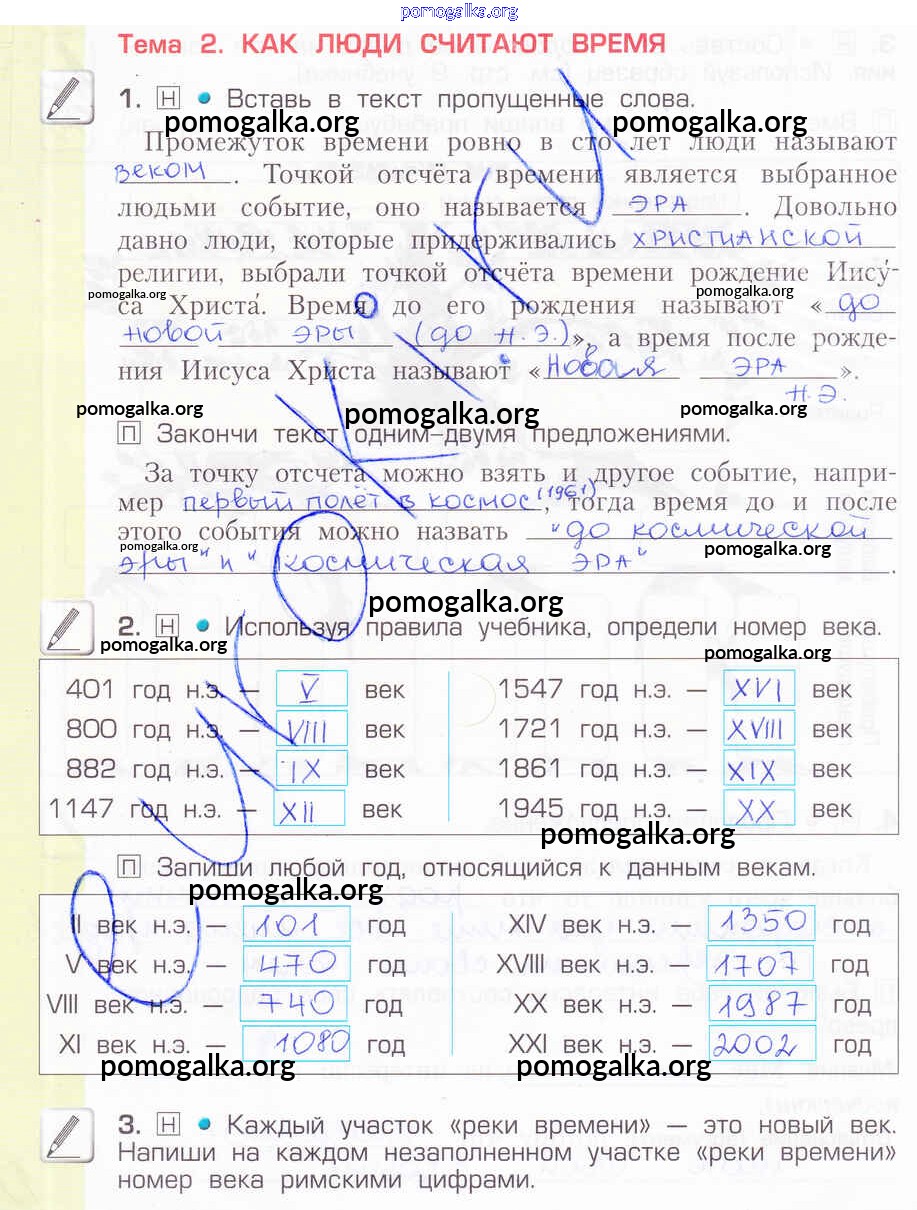 pomogalka.org
Тема 2. КАК ЛЮДИ СЧИТАЮТ ВРЕМЯ
1. Н • Вставь в текст пропущенные слова.
pomogalka.org pomogalka.org
Промежуток времени ровно в сто лет люди называют
веком. Точкой отсчёта времени является выбранное
людьми событие, оно называется эра. Довольно
давно люди, которые придерживались христианской
религии, выбрали точкой отсчёта времени рождение Иису́-
pomogalka.org pomogalka.org
са Христа́. Время до его рождения называют «до
новой эры (до н.э.)», а время после рожде-
ния Иисуса Христа называют «Новая эра».
н.э.
pomogalka.org pomogalka.org pomogalka.org
П Закончи текст одним–двумя предложениями.
За точку отсчета можно взять и другое событие, напри-
мер первый полёт в космос (1961), тогда время до и после
этого события можно назвать "до космической
pomogalka.org pomogalka.org
эры" и "космическая эра".
pomogalka.org
2. Н • Используя правила учебника, определи номер века.
pomogalka.org pomogalka.org
401 год н.э. — V век 1547 год н.э. — XVI век
800 год н.э. — VIII век 1721 год н.э. — XVIII век
882 год н.э. — IX век 1861 год н.э. — XIX век
1147 год н.э. — XII век 1945 год н.э. — XX век
pomogalka.org
П Запиши любой год, относящийся к данным векам.
II век н.э. — 101 год XIV век н.э. — 1350 год
V век н.э. — 470 год XVIII век н.э. — 1707 год
VIII век н.э. — 740 год XX век н.э. — 1987 год
XI век н.э. — 1080 год XXI век н.э. — 2002 год
pomogalka.org pomogalka.org
3. Н • Каждый участок «реки времени» — это новый век.
Напиши на каждом незаполненном участке «реки времени»
номер века римскими цифрами.